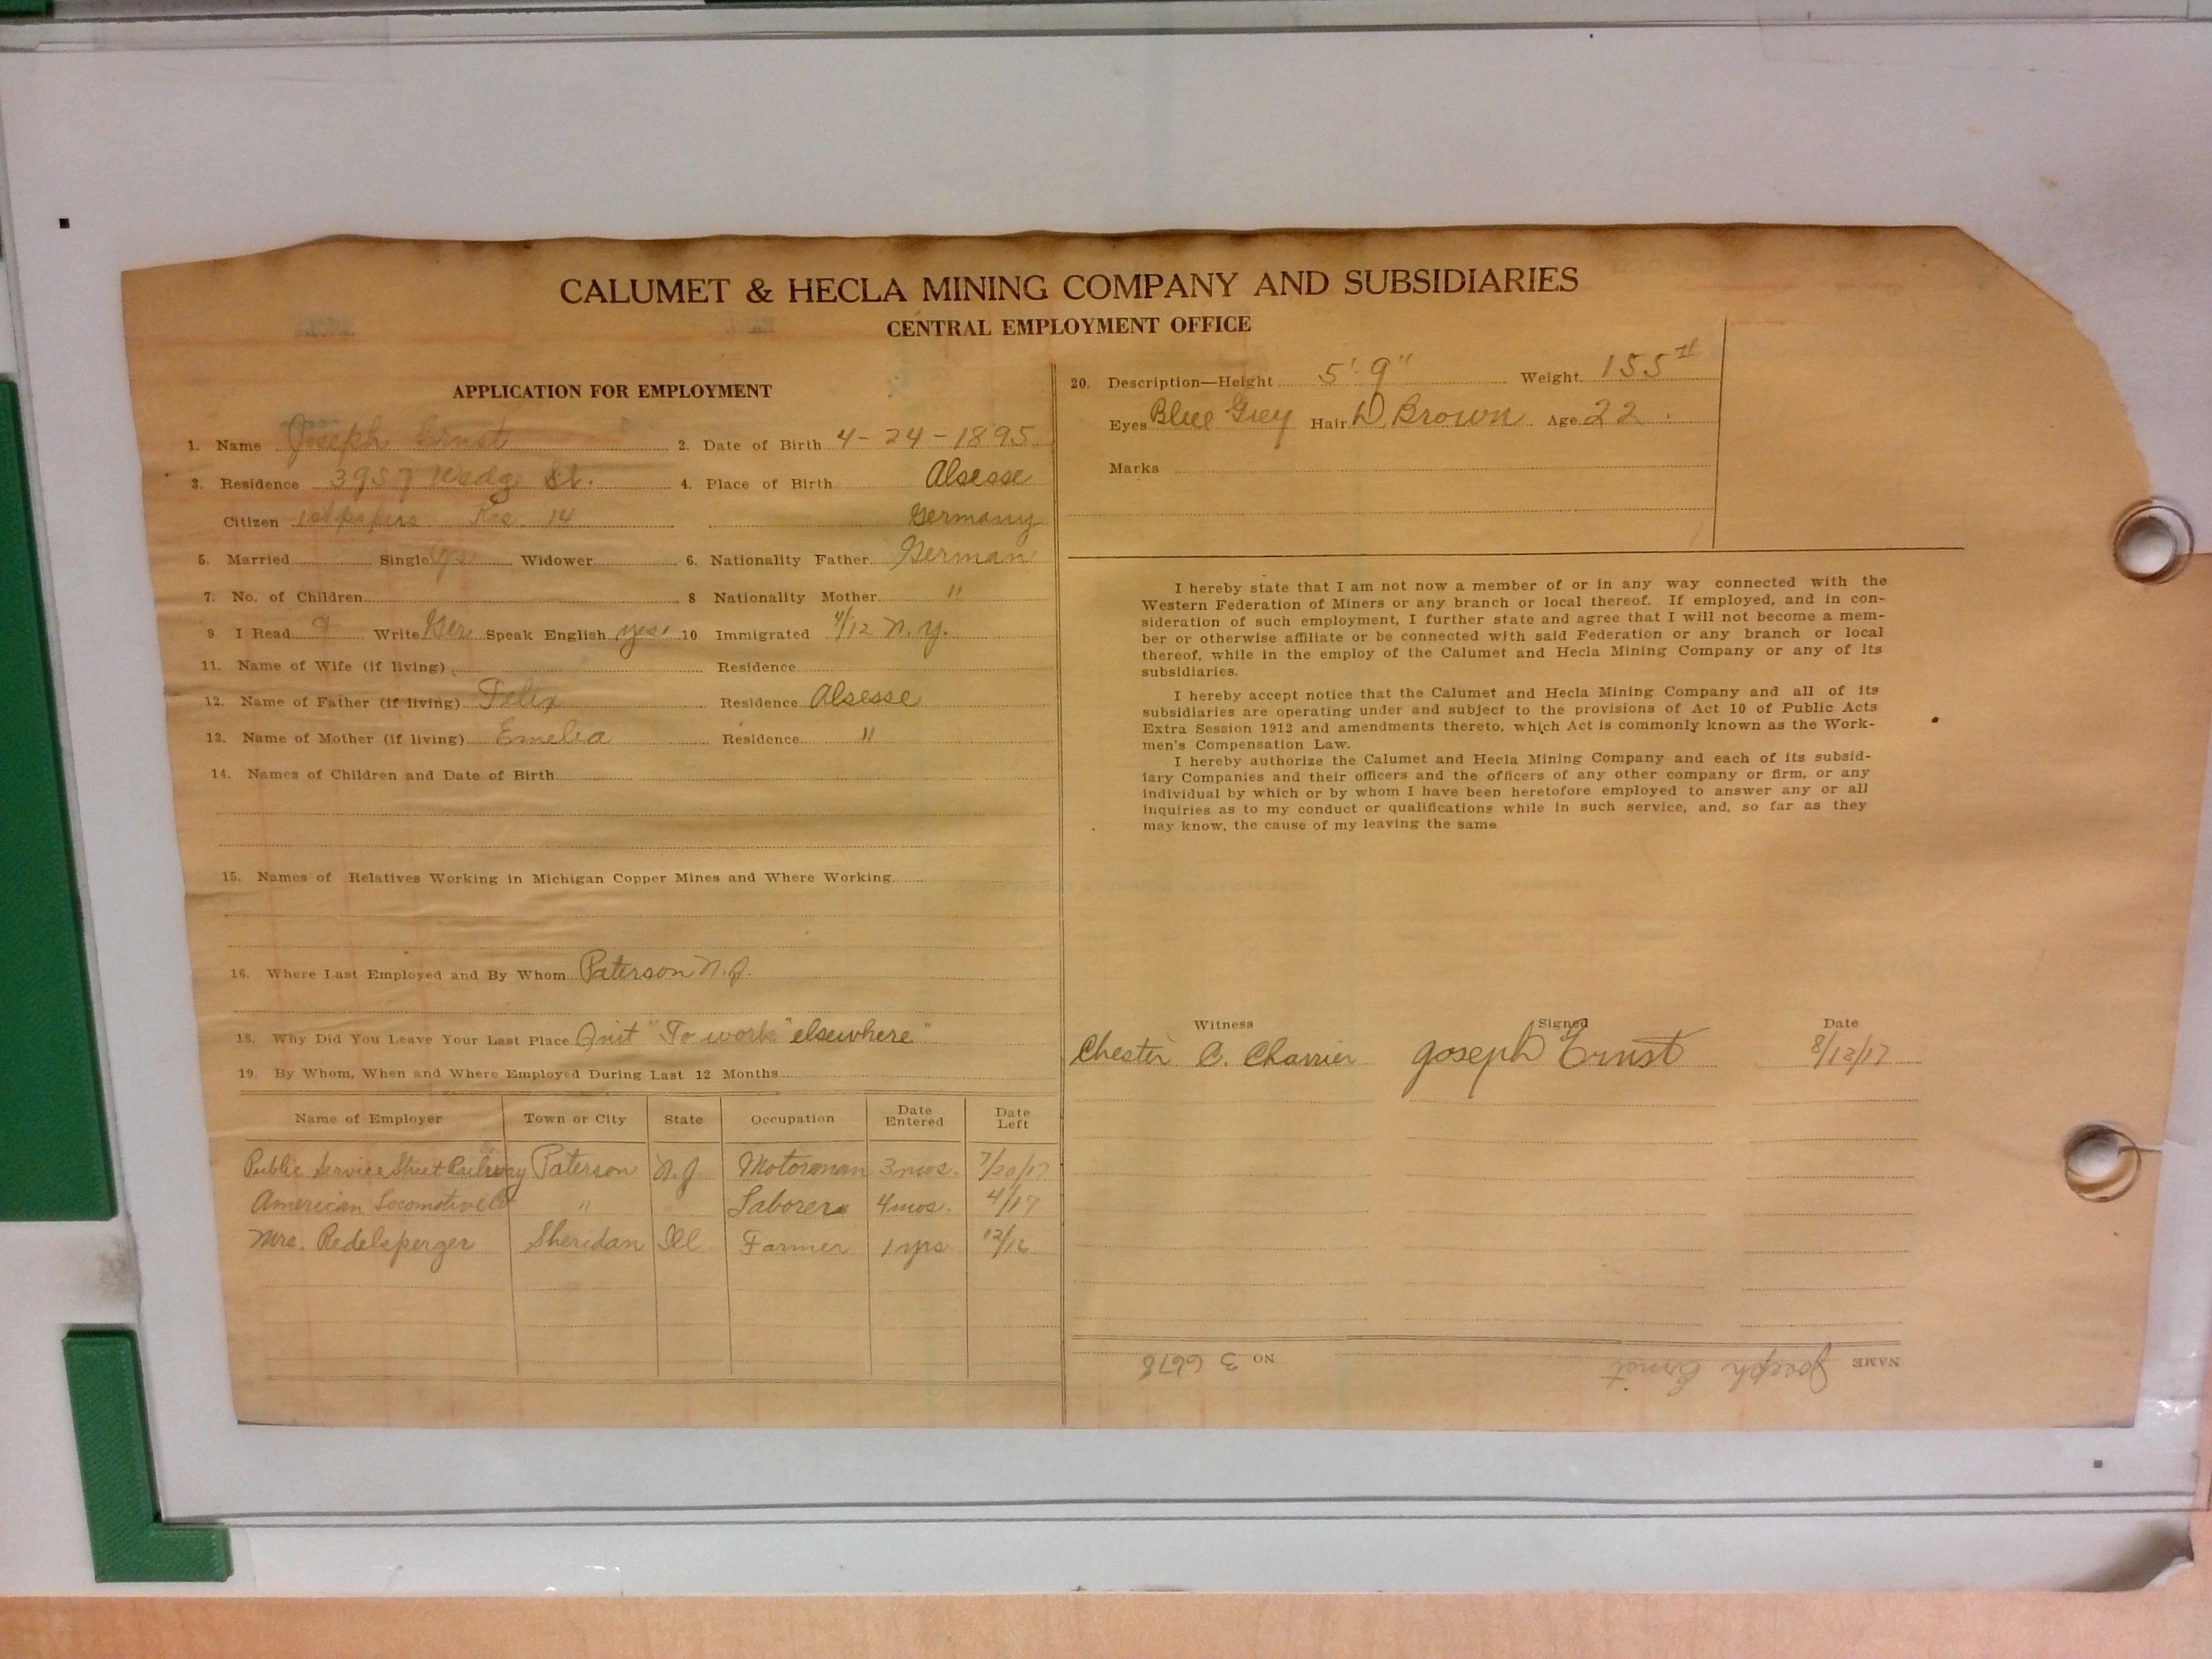 CALUMET & HECLA MINING COMPANY AND SUBSIDIARIES
CENTRAL EMPLOYMENT OFFICE
APPLICATION FOR EMPLOYMENT
1. Name Joseph Ernst 2. Date of Birth 4-24-1895
3. Residence 3957 Wedge St. 4. Place of Birth Alsesse
Citizen 1st papers 14 Germany
5. Married Single Yes Widower 6. Nationality Father German
7. No. of Children 8 Nationality Mother "
9 I Read Write Ger Speak English yes 10 Immigrated 4/12 N.Y.
11. Name of Wife (if living) Residence
12. Name of Father (if living) Felix Residence Alsesse
13. Name of Mother (if living) Emelia Residence "
14. Names of Children and Date of Birth
15. Names of Relatives Working in Michigan Copper Mines and Where Working
16. Where Last Employed and By Whom Paterson N.J.
18. Why Did You Leave Your Last Place Quit "To work" elsewhere"
19. By Whom, When and Where Employed During Last 12 Months
Name of Employer Town or City State Occupation Date Entered Date Left
Public Service Street Railway Paterson N.J Motorman 3 mos. 7/20/17
American Locomotive Co " " Laborer 4 mos. 4/17
Mrs. Redelsperger Sheridan Ill. Farmer 1 yrs 12/16
20. Description—Height 5' 9" Weight 155#
Eyes Blue Grey Hair D. Brown Age 22.
Marks
I hereby state that I am not now a member of or in any way connected with the
Western Federation of Miners or any branch or local thereof. If employed, and in con-
sideration of such employment, I further state and agree that I will not become a mem-
ber or otherwise affiliate or be connected with said Federation or any branch or local
thereof, while in the employ of the Calumet and Hecla Mining Company or any of its
subsidiaries.
I hereby accept notice that the Calumet and Hecla Mining Company and all of its
subsidiaries are operating under and subject to the provisions of Act 10 of Public Acts
Extra Session 1912 and amendments thereto, which Act is commonly known as the Work-
men's Compensation Law.
I hereby authorize the Calumet and Hecla Mining Company and each of its subsid-
iary Companies and their officers and the officers of any other company or firm, or any
individual by which or by whom I have been heretofore employed to answer any or all
inquiries as to my conduct or qualifications while in such service, and, so far as they
may know, the cause of my leaving the same
Witness Signed Date
Chester C. Charrier Joseph Ernst 8/13/17
NAME Joseph Ernst NO 3 6678